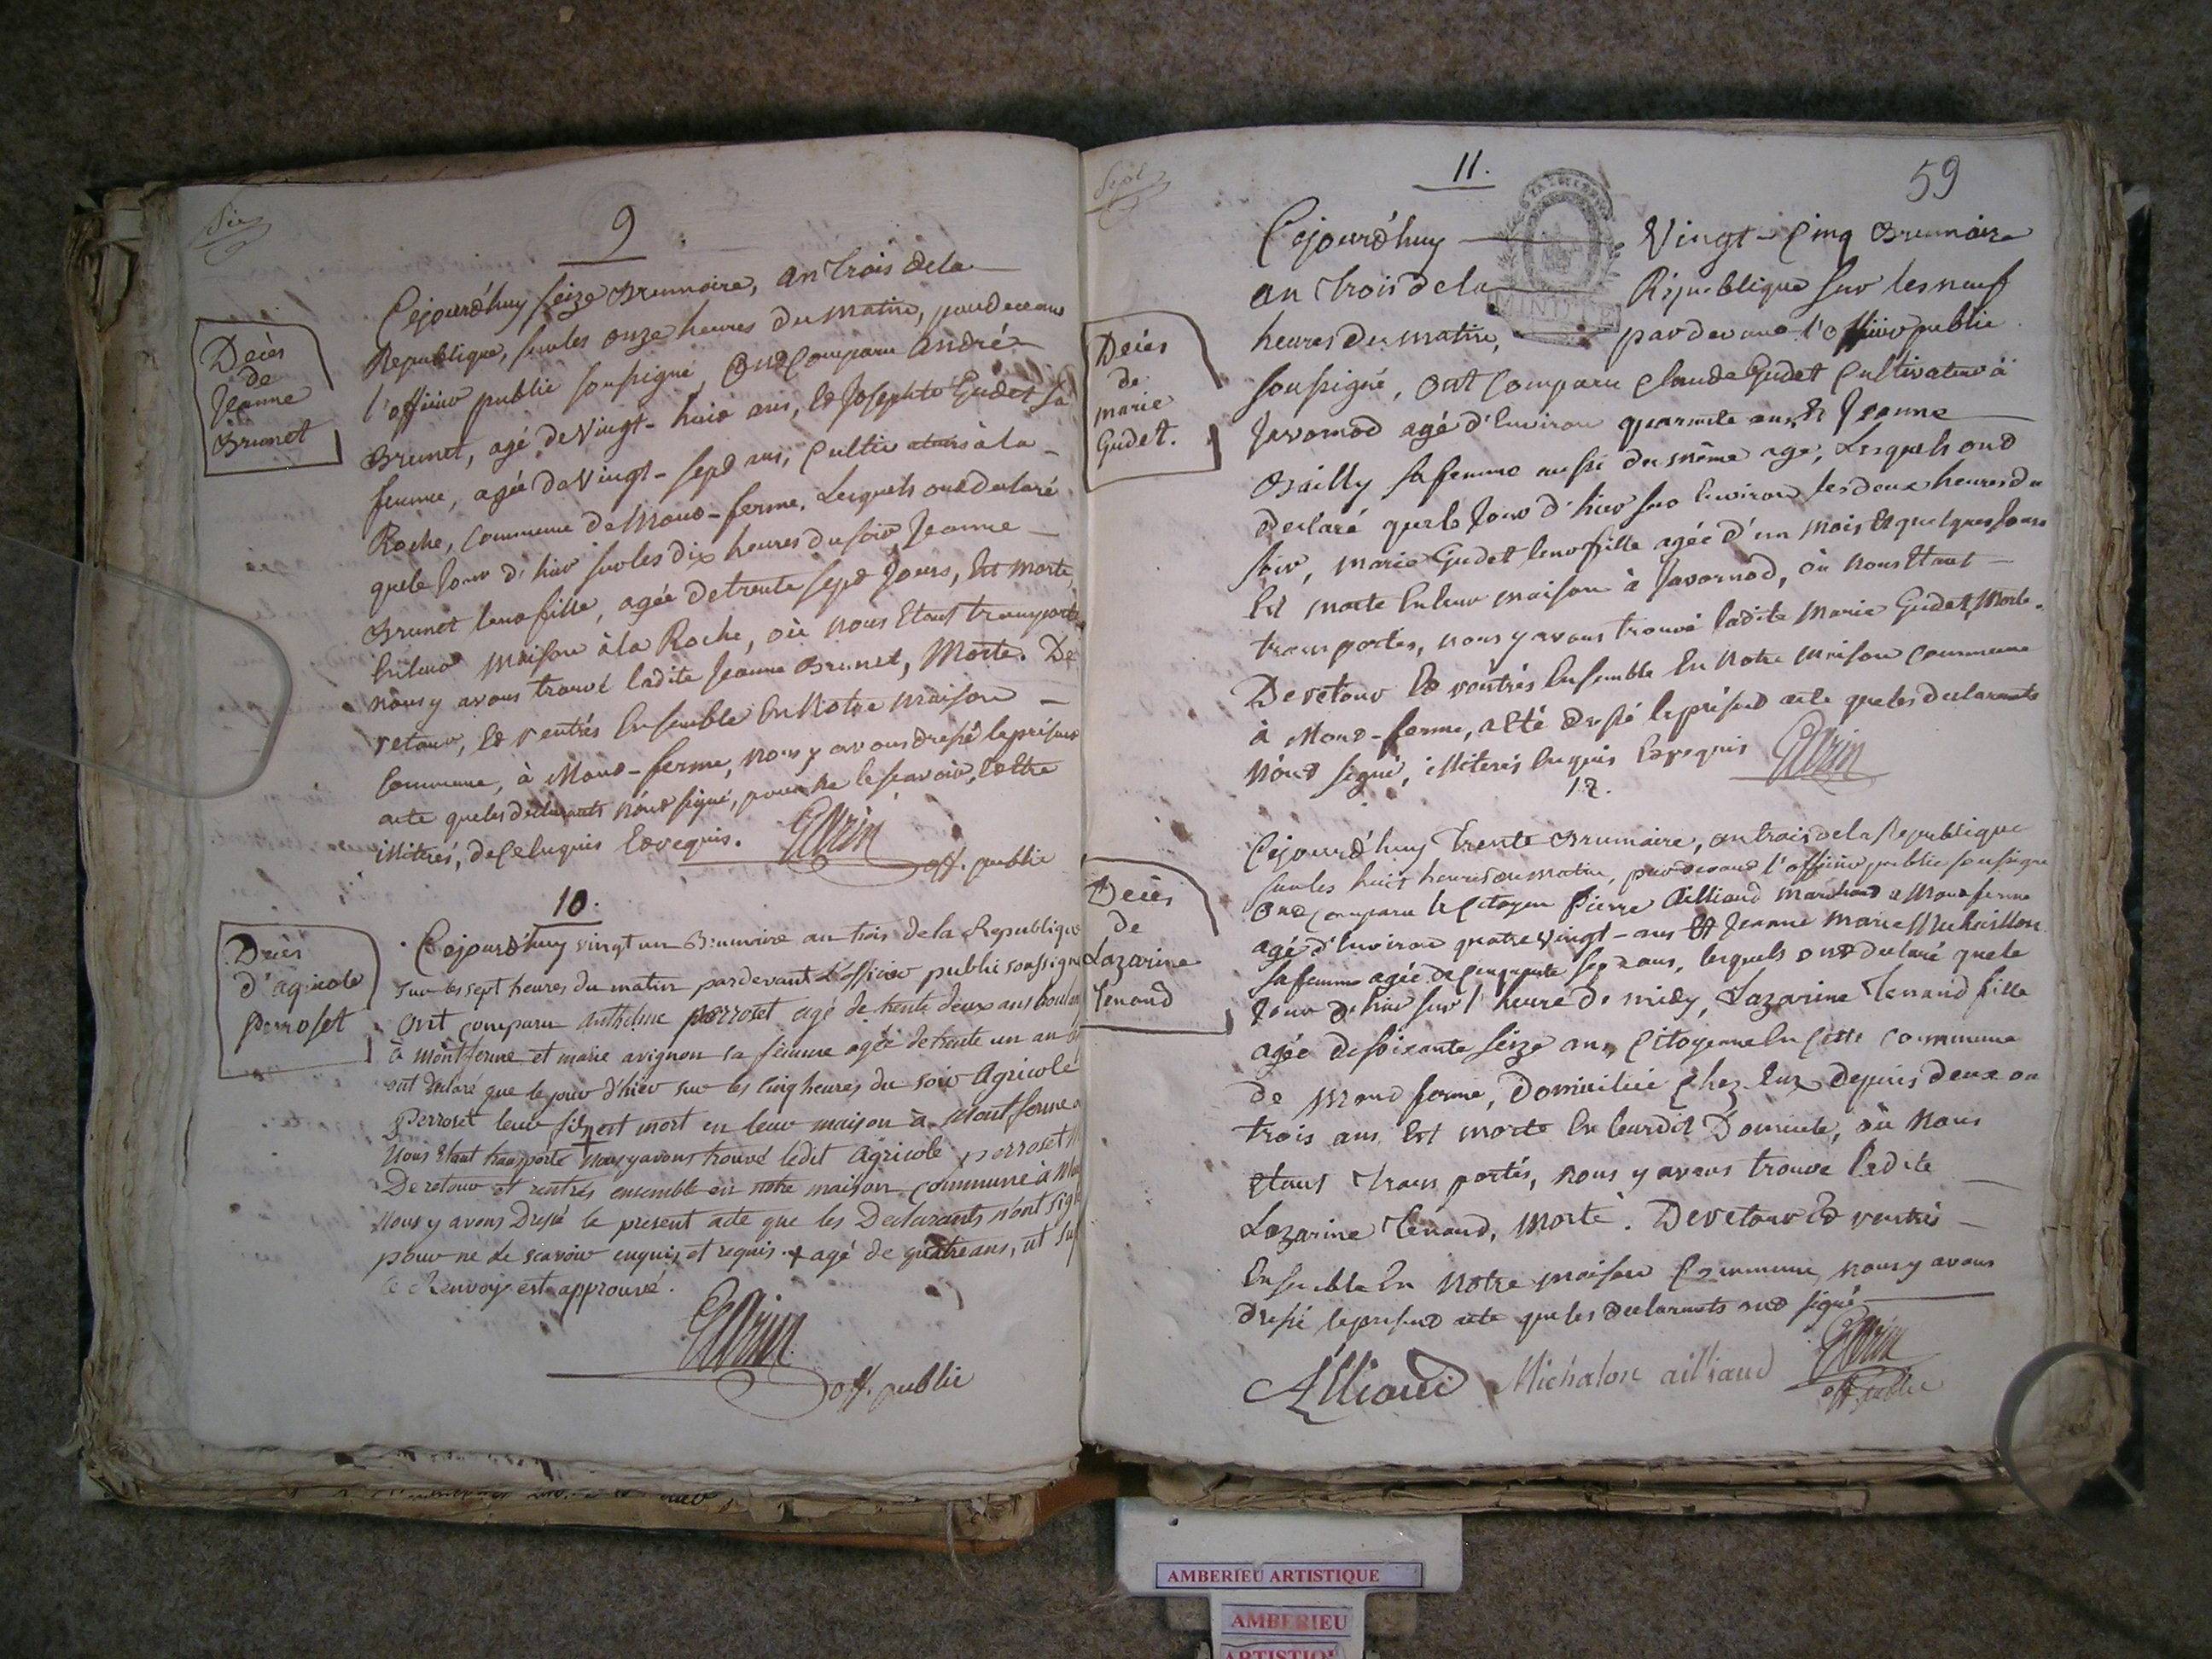 Six
9
Decès
de
Jeanne
Brunet
Cejourd'huy seize Brumaire, an trois de la
Republique, sur les onze heures du matin, pardevant
l'officier public soussigné, ont comparu andré
Brunet, agé de vingt-huit ans, et Josephte Gudet sa
femme, agée de vingt-sept ans, cultivateurs à la
Roche, commune de Mont-ferme. Lesquels ont declaré
que le jour d'hier sur les dix heures du soir Jeanne
Brunet leur fille, agée de trente sept jours, est morte,
en leur maison à la Roche, où nous étant transportés
nous y avons trouvé ladite Jeanne Brunet, Morte. De
retour, et rentrés ensemble en notre maison
Commune, à Mont-ferme, nous y avons dressé le présent
acte que les déclarants n'ont signé, pour ne le scavoir, et être
illiterés, de ce enquis et requis.
off. public
10.
Decès
d'agricole
perroset
Cejourd'huy vingt un Brumaire an trois de la Republique
sur les sept heures du matin pardevant l'officier public soussigné
ont comparu anthelme perroset agé de trente deux ans
à Montferme et marie avignon sa femme agée de trente un an
ont declaré que le jour d'hier sur les cinq heures du soir Agricole
Perroset leur fils + est mort en leur maison à Montferme
Nous étant transporté nous y avons trouvé ledit Agricole perroset
De retour et rentrés ensemble en notre maison commune à
Nous y avons Dressé le present acte que les Declarants n'ont signé
pour ne le scavoir enquis et requis. + agé de quatre ans,
le Renvoy est approuvé.
off. public
Sept
11.
59
MINUTE
Decés
de
marie
Gudet.
Cejourd'huy Vingt-Cinq Brumaire
an trois de la République sur les neuf
heures du matin, pardevant l'officier public
soussigné, ont comparu Claude Gudet Cultivateur à
Javornod agé d'environ quarante ans et Jeanne
Bailly sa femme aussi du même age, Lesquels ont
declaré que le jour d'hier sur environ les deux heures du
soir, marie Gudet leur fille agée d'un mois et quelques jours
est morte en leur maison à Javornod, où nous étant
transportés, nous y avons trouvé ladite Marie Gudet, Morte.
De retour et rentrés ensemble en notre maison commune
à Mont-ferme, a été dressé le présent acte que les declarants
n'ont signé, illiterés enquis et requis
12.
Decès
de
Lazarine
Tenand
Cejourd'huy Trente Brumaire, an trois de la Republique
sur les huit heures du matin, pardevant l'officier public soussigné
ont comparu le Citoyen Pierre Ailliaud marchand à Montferme
agé d'environ quatre vingt-ans et Jeanne Marie
sa femme agée de cinquante sept ans, lesquels ont declaré que le
jour d'hier sur l'heure de midy, Lazarine Tenand fille
agée de soixante seize ans, Citoyenne en cette commune
de Mont ferme, Domiciliée chez eux depuis deux ou
trois ans est morte en leur dit Domicile, où Nous
étant Transportés, nous y avons trouvé ladite
Lazarine Tenand, Morte. De retour et rentrés
ensemble en Notre maison Commune, nous y avons
dressé le présent acte que les declarants ont signé
Ailliaud Michalon ailliaud
off. public
AMBERIEU ARTISTIQUE
AMBERIEU
ARTISTIQUE